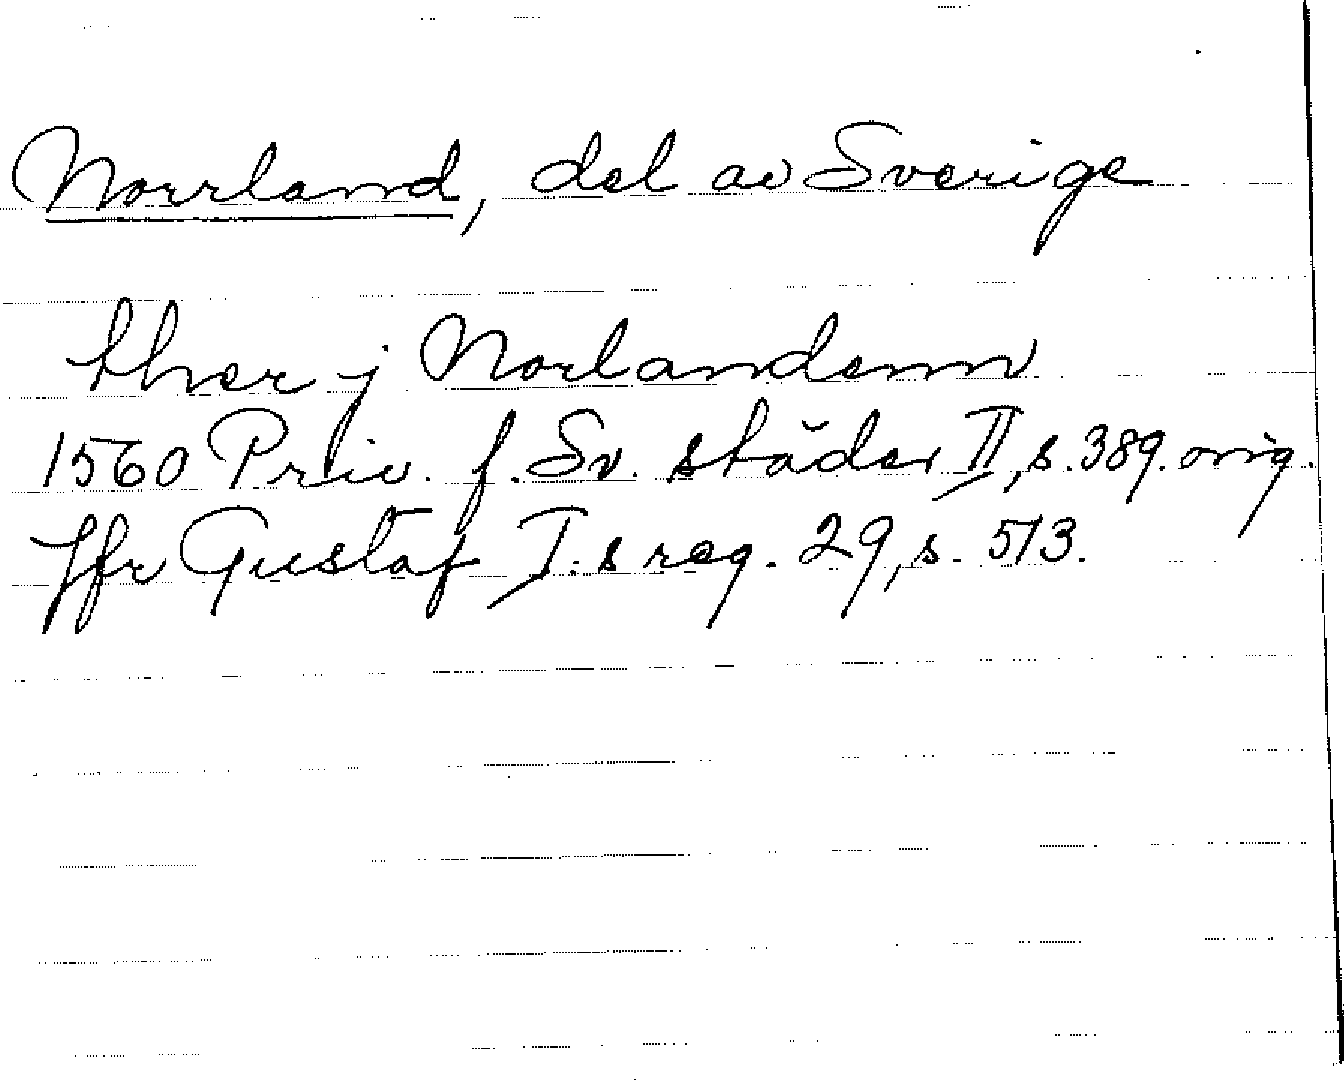 Norrland, del av Sverige
ther j Norlandenn
1560 Priv. f. Sv. städer II, s. 389. orig.
Jfr Gustaf I.s reg. 29, s. 513.